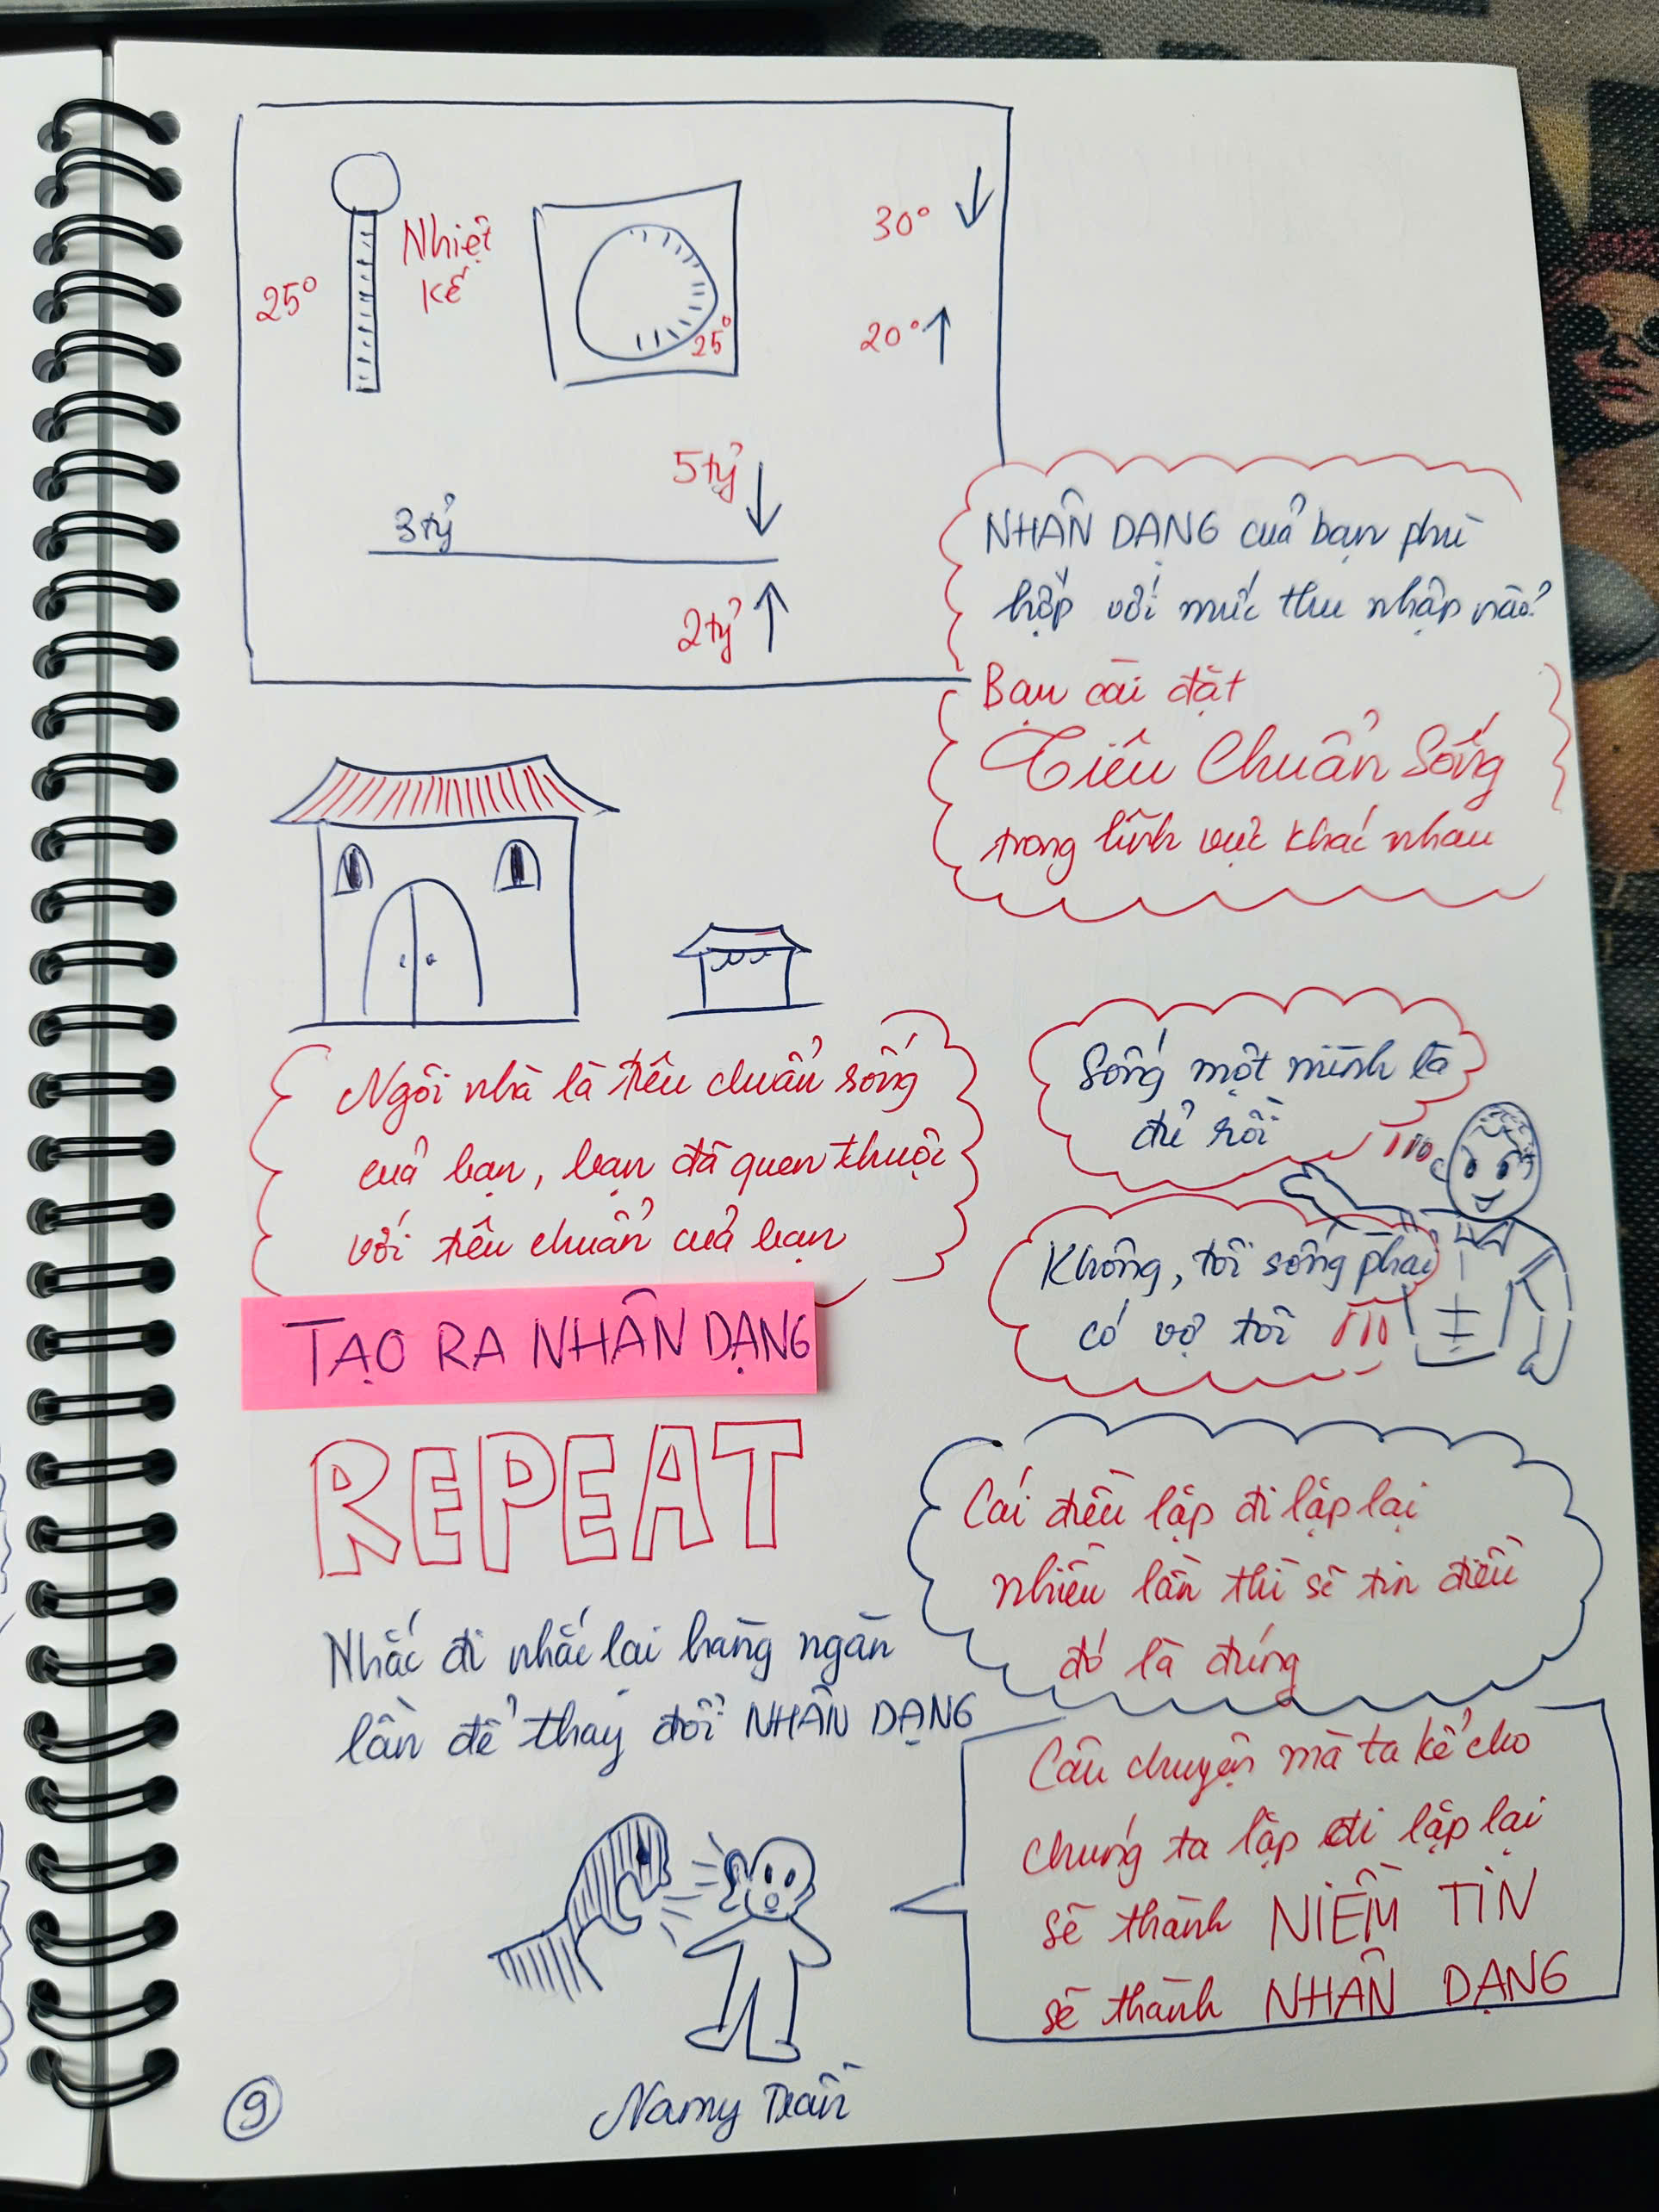 Nhiệt
kế
25°
25°
30°
20°
5 tỷ
3 tỷ
2 tỷ
NHÂN DẠNG của bạn phù
hợp với mức thu nhập nào?
Bạn cài đặt
Tiêu Chuẩn Sống
trong lĩnh vực khác nhau
Ngôi nhà là tiêu chuẩn sống
của bạn, bạn đã quen thuộc
với tiêu chuẩn của bạn
Sống một mình là
đủ rồi
Không, tôi sống phải
có vợ tôi
TẠO RA NHÂN DẠNG
REPEAT
Nhắc đi nhắc lại hàng ngàn
lần để thay đổi NHÂN DẠNG
Cái điều lặp đi lặp lại
nhiều lần thì sẽ tin điều
đó là đúng
Câu chuyện mà ta kể cho
chúng ta lặp đi lặp lại
sẽ thành NIỀM TIN
sẽ thành NHÂN DẠNG
9
Namy Trần